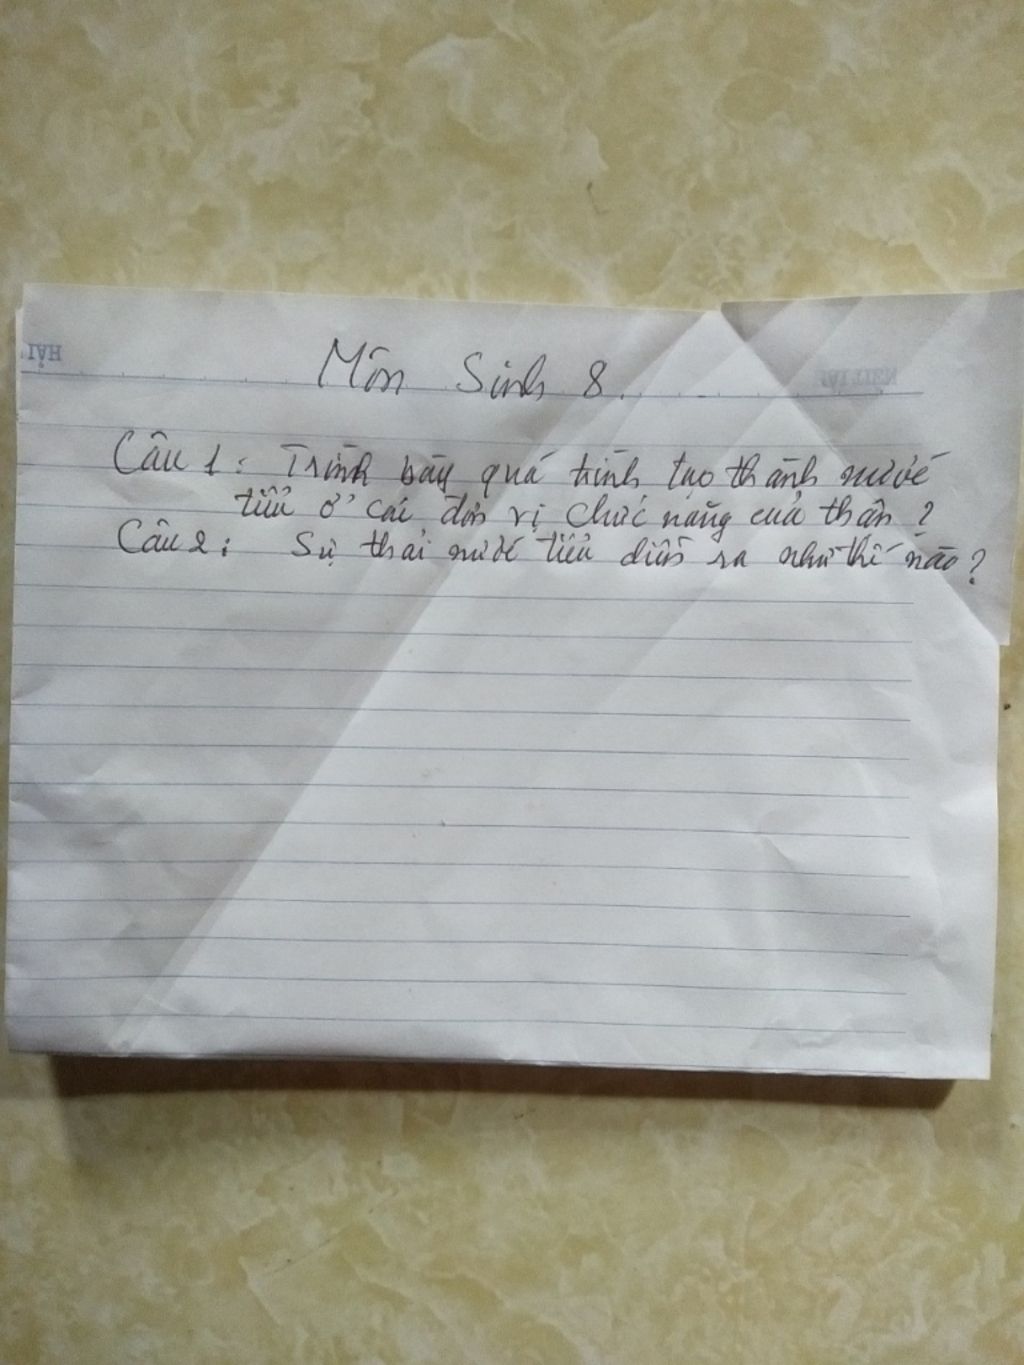 Môn Sinh 8.
Câu 1: Trình bày quá trình tạo thành nước
tiểu ở các đơn vị chức năng của thận?
Câu 2: Sự thải nước tiểu diễn ra như thế nào?
HẢI